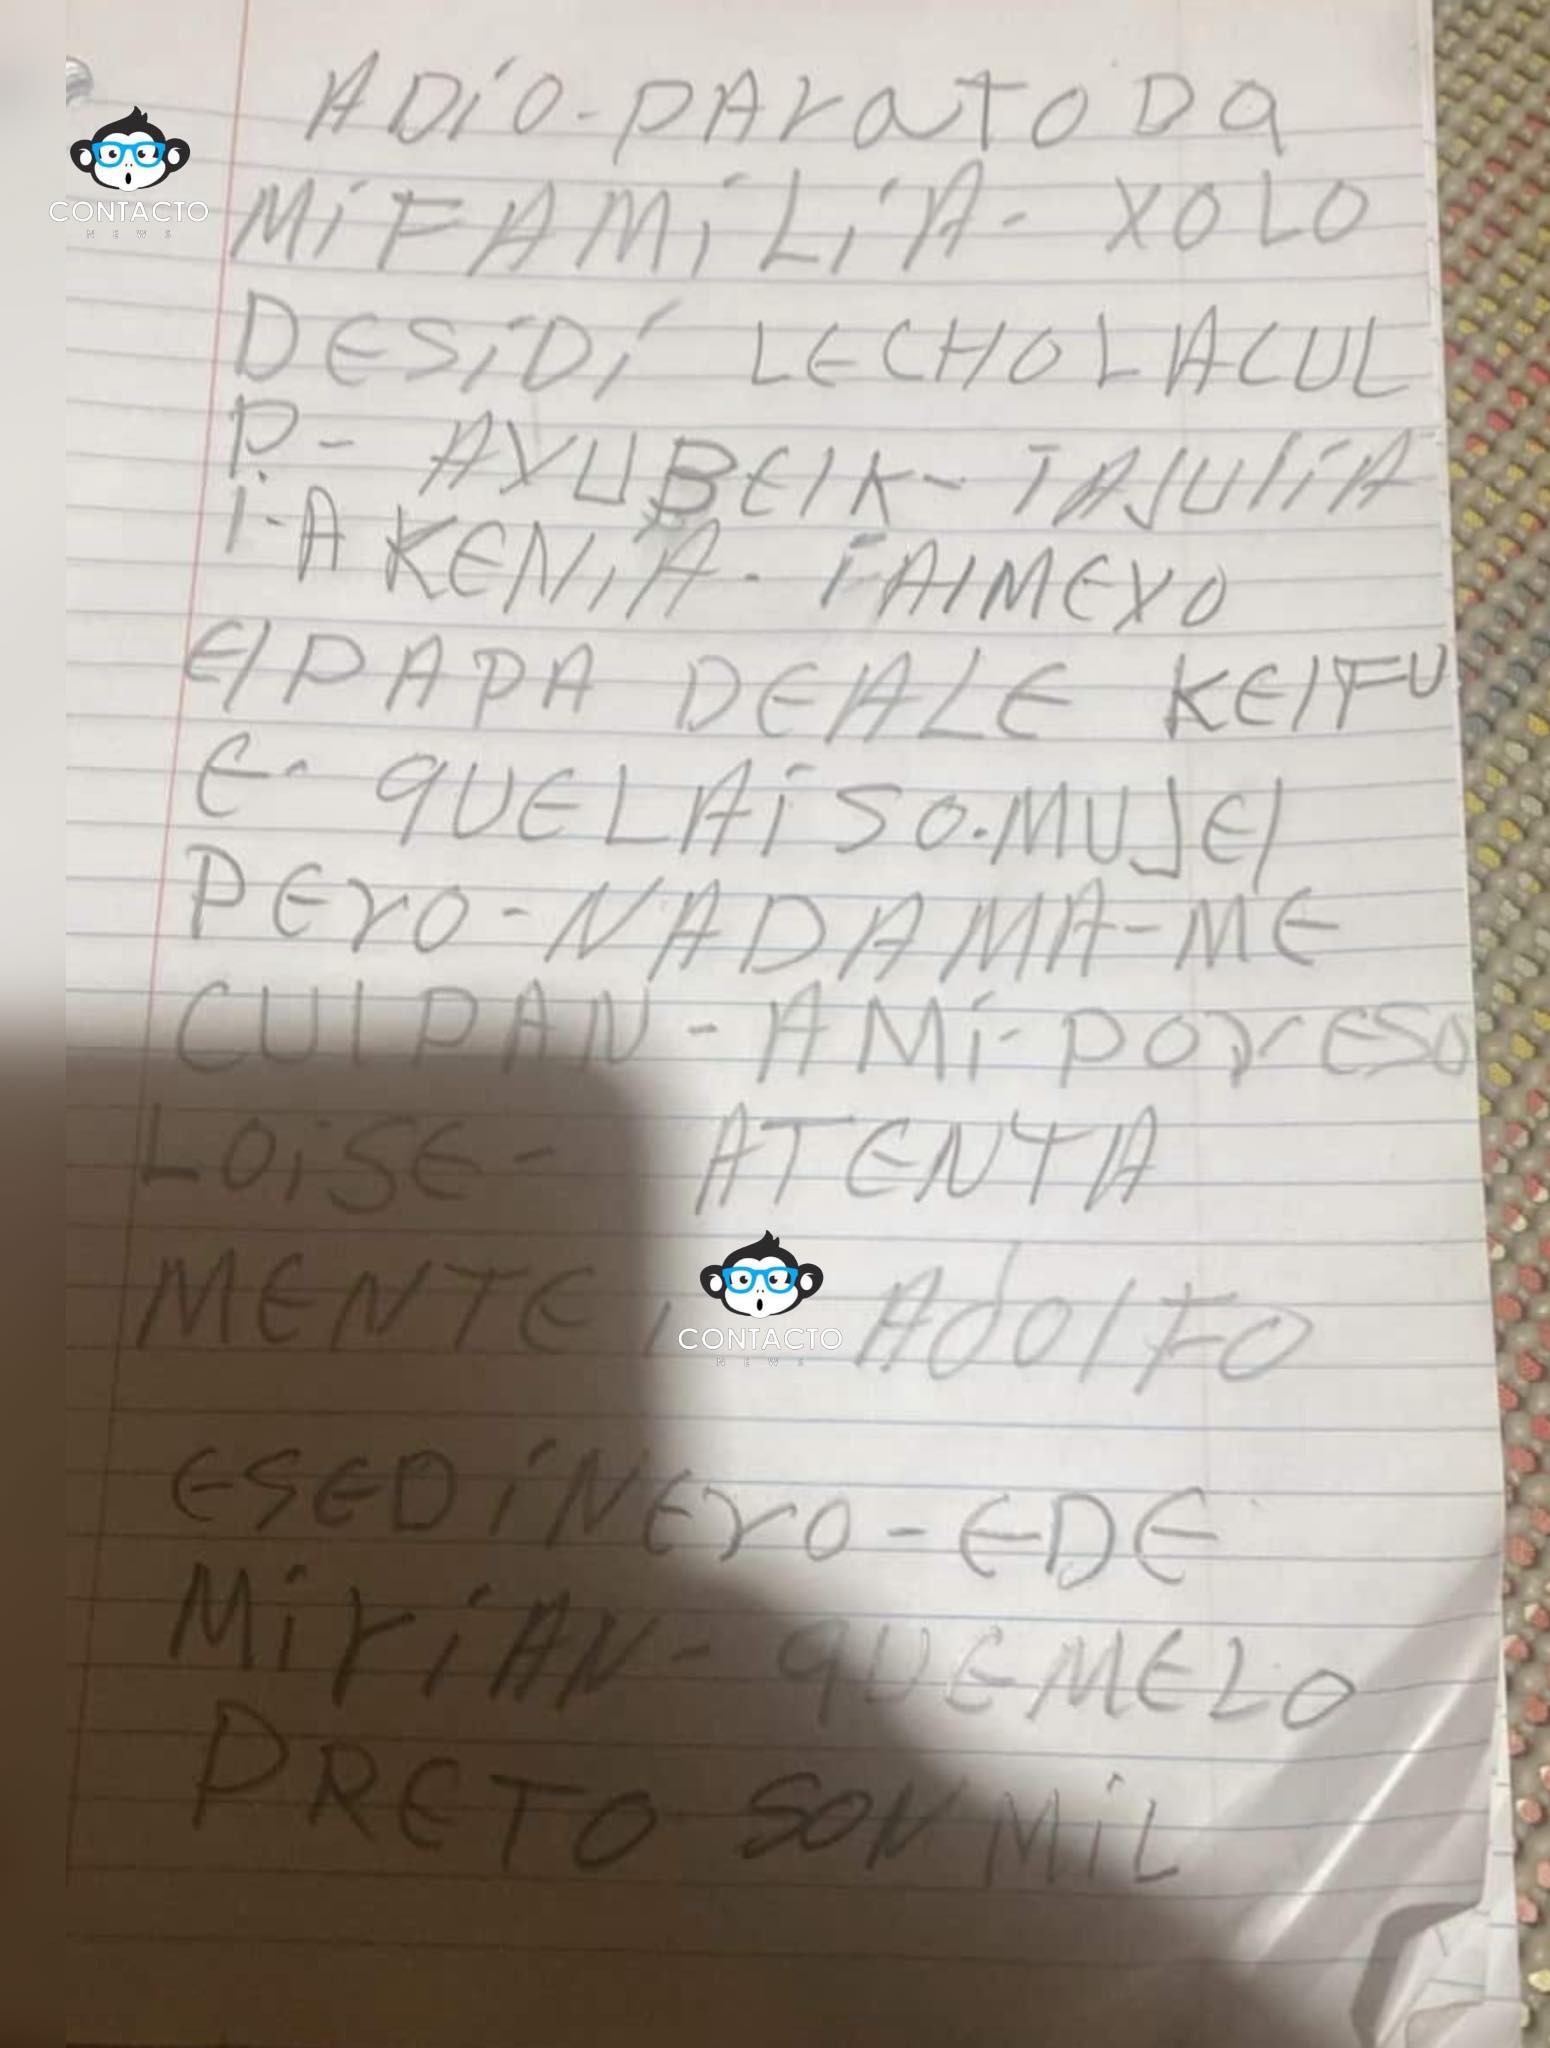 ADIO-PAraTODa
MIFAMILIA- XOLO
DESIDI LECHOLACUL
P- AYUBEIK- TAJULIA
I-A KENIA- IAIMEXO
ElPAPA DEALE KEIFU
E- QUELAISO.MUJEl
PErO-NADAMA-ME
CUlPAN-AMI-POrESO
LOISE- ATENTA
MENTE, AdOlFO
ESEDINErO-EDE
MIrIAN-QUEMELO
PRETO SON MIL
CONTACTO
NEWS
CONTACTO
NEWS